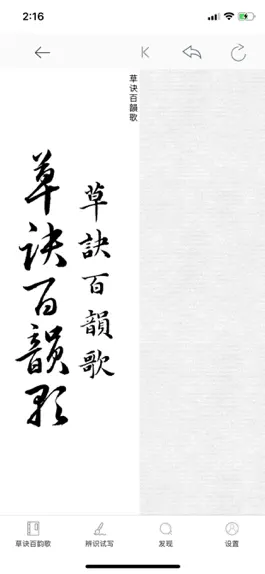 2:16
草诀百韻歌
草訣百韻歌
草诀百韻歌
草诀百韵歌
辨识试写
发现
设置